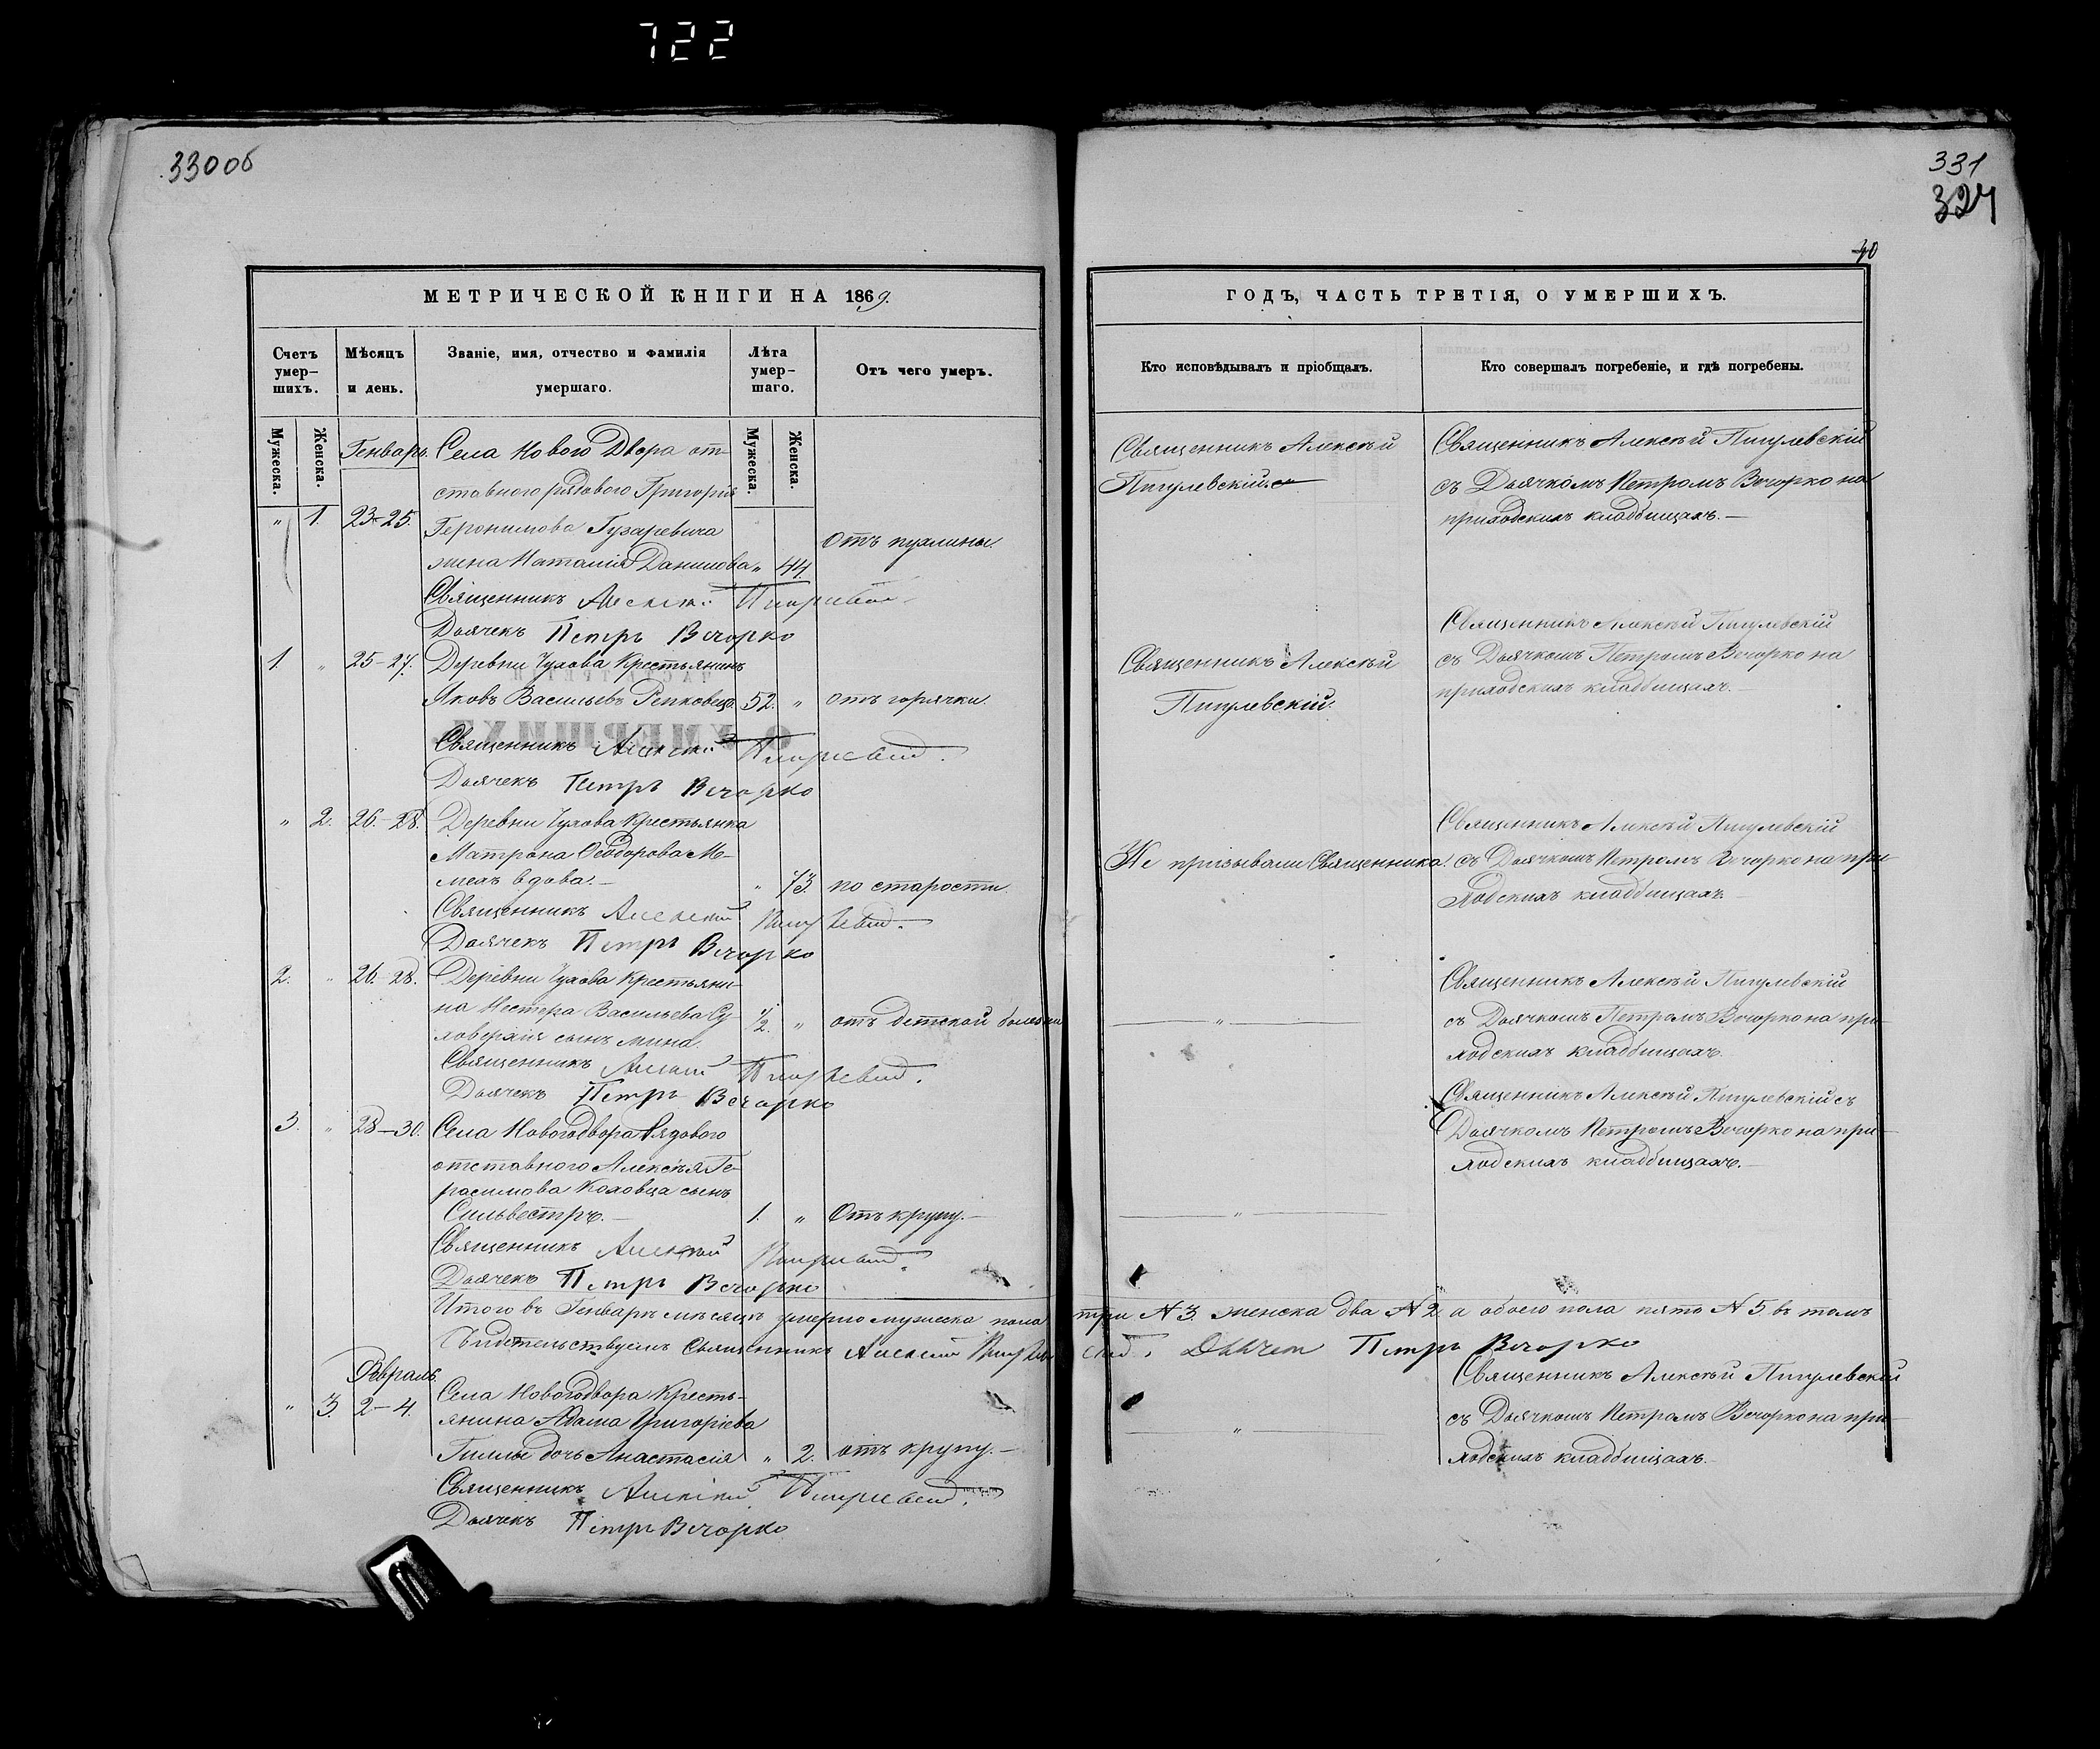 722
330 об
331
324
40
МЕТРИЧЕСКОЙ КНИГИ НА 1869.
Счетъ умер-шихъ.
Мѣсяцъ и день.
Званіе, имя, отчество и фамилія умершаго.
Лѣта умер-шаго.
Отъ чего умеръ.
Мужеска.
Женска.
Мужеска.
Женска.
Генварь
Села Нового Двора от-
ставного рядового Григорія
" 1. 23-25. Геронимова Гузаревича
жена Наталія Данилова " 44. Отъ пухлины.
Священникъ Алексѣй Пигулевскій
Дьячекъ Петръ Вечорко
1. " 25-27. Деревни Чухова Крестьянинъ
Яковъ Васильевъ 52. " отъ горячки.
Священникъ Алексѣй Пигулевскій.
Дьячекъ Петръ Вечорко
" 2. 26.-28. Деревни Чухова Крестьянка
Матрона Ѳеодорова Ме-
лехъ вдова.- " 73. по старости
Священникъ Алексѣй Пигулевскій.
Дьячекъ Петръ Вечорко
2. " 26.-28. Деревни Чухова Крестьяни-
на Нестера Васильева Су-
1/2. " отъ детской болезни
сынъ Мина.
Священникъ Алексѣй Пигулевскій.
Дьячекъ Петръ Вечорко
3. " 28-30. Села Новогодвора Рядового
отставного Алексѣя Ге-
расимова Коховца сынъ
Сильвестръ.- 1. " Отъ крупу.-
Священникъ Алексѣй Пигулевскій.
Дьячекъ Петръ Вечорко
Итого въ Генварѣ мѣсяцѣ умерло мужеска пола
Свидетельствуемъ Священникъ Алексѣй Пигулев
Февраль.
Села Новогодвора Кресть-
" 3. 2-4. янина Адама Григоріева
Гиллы дочь Анастасія " 2. отъ крупу.-
Священникъ Алексѣй Пигулевскій.
Дьячекъ Петръ Вечорко
ГОДЪ, ЧАСТЬ ТРЕТІЯ, О УМЕРШИХЪ.
Кто исповѣдывалъ и пріобщалъ.
Кто совершалъ погребеніе, и гдѣ погребены.
Священникъ Алексѣй
Пигулевскій.
Священникъ Алексѣй Пигулевскій
съ Дьячкомъ Петромъ Вечорко на
приходскихъ кладбищахъ.-
Священникъ Алексѣй
Пигулевскій.
Священникъ Алексѣй Пигулевскій
съ Дьячкомъ Петромъ Вечорко на
приходскихъ кладбищахъ.-
Не призывали Священника.
Священникъ Алексѣй Пигулевскій
съ Дьячкомъ Петромъ Вечорко на при-
ходскихъ кладбищахъ.
"
Священникъ Алексѣй Пигулевскій
съ Дьячкомъ Петромъ Вечорко на при-
ходскихъ кладбищахъ.
"
Священникъ Алексѣй Пигулевскій съ
Дьячкомъ Петромъ Вечорко на при-
ходскихъ кладбищахъ.-
три N 3. женска два N 2 а обоего пола пять N 5 въ томъ
скій. Дьячекъ Петръ Вечорко
"
Священникъ Алексѣй Пигулевскій
съ Дьячкомъ Петромъ Вечорко на при-
ходскихъ кладбищахъ.